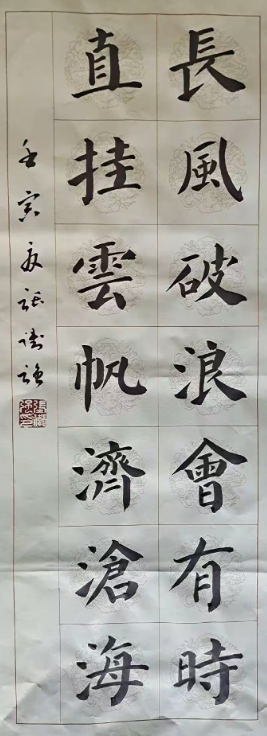 長風破浪會有時
直挂雲帆濟滄海
壬寅